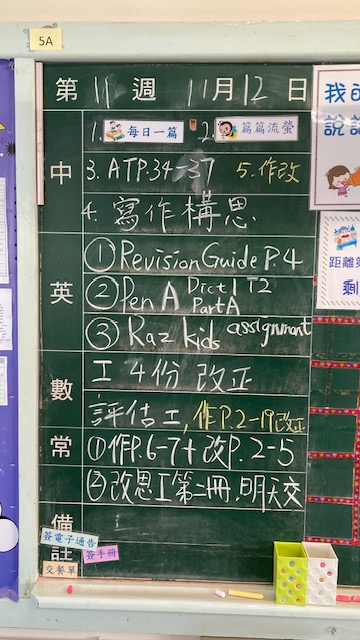 5A
第 11 週 11月12日
中
每日一篇 2. 篇篇流螢
3. ATP.34-37 5.作改
4. 寫作構思
英
① Revision Guide P.4
② Pen A Dict 1 T2 Part A
③ Raz kids assignment
數
工 4份 改正
評估工,作P.2-19改正
常
①作P.6-7+改P.2-5
②改思工第二冊,明天交
備註
簽電子通告
簽手冊
交餐單
我
說
距離
剩